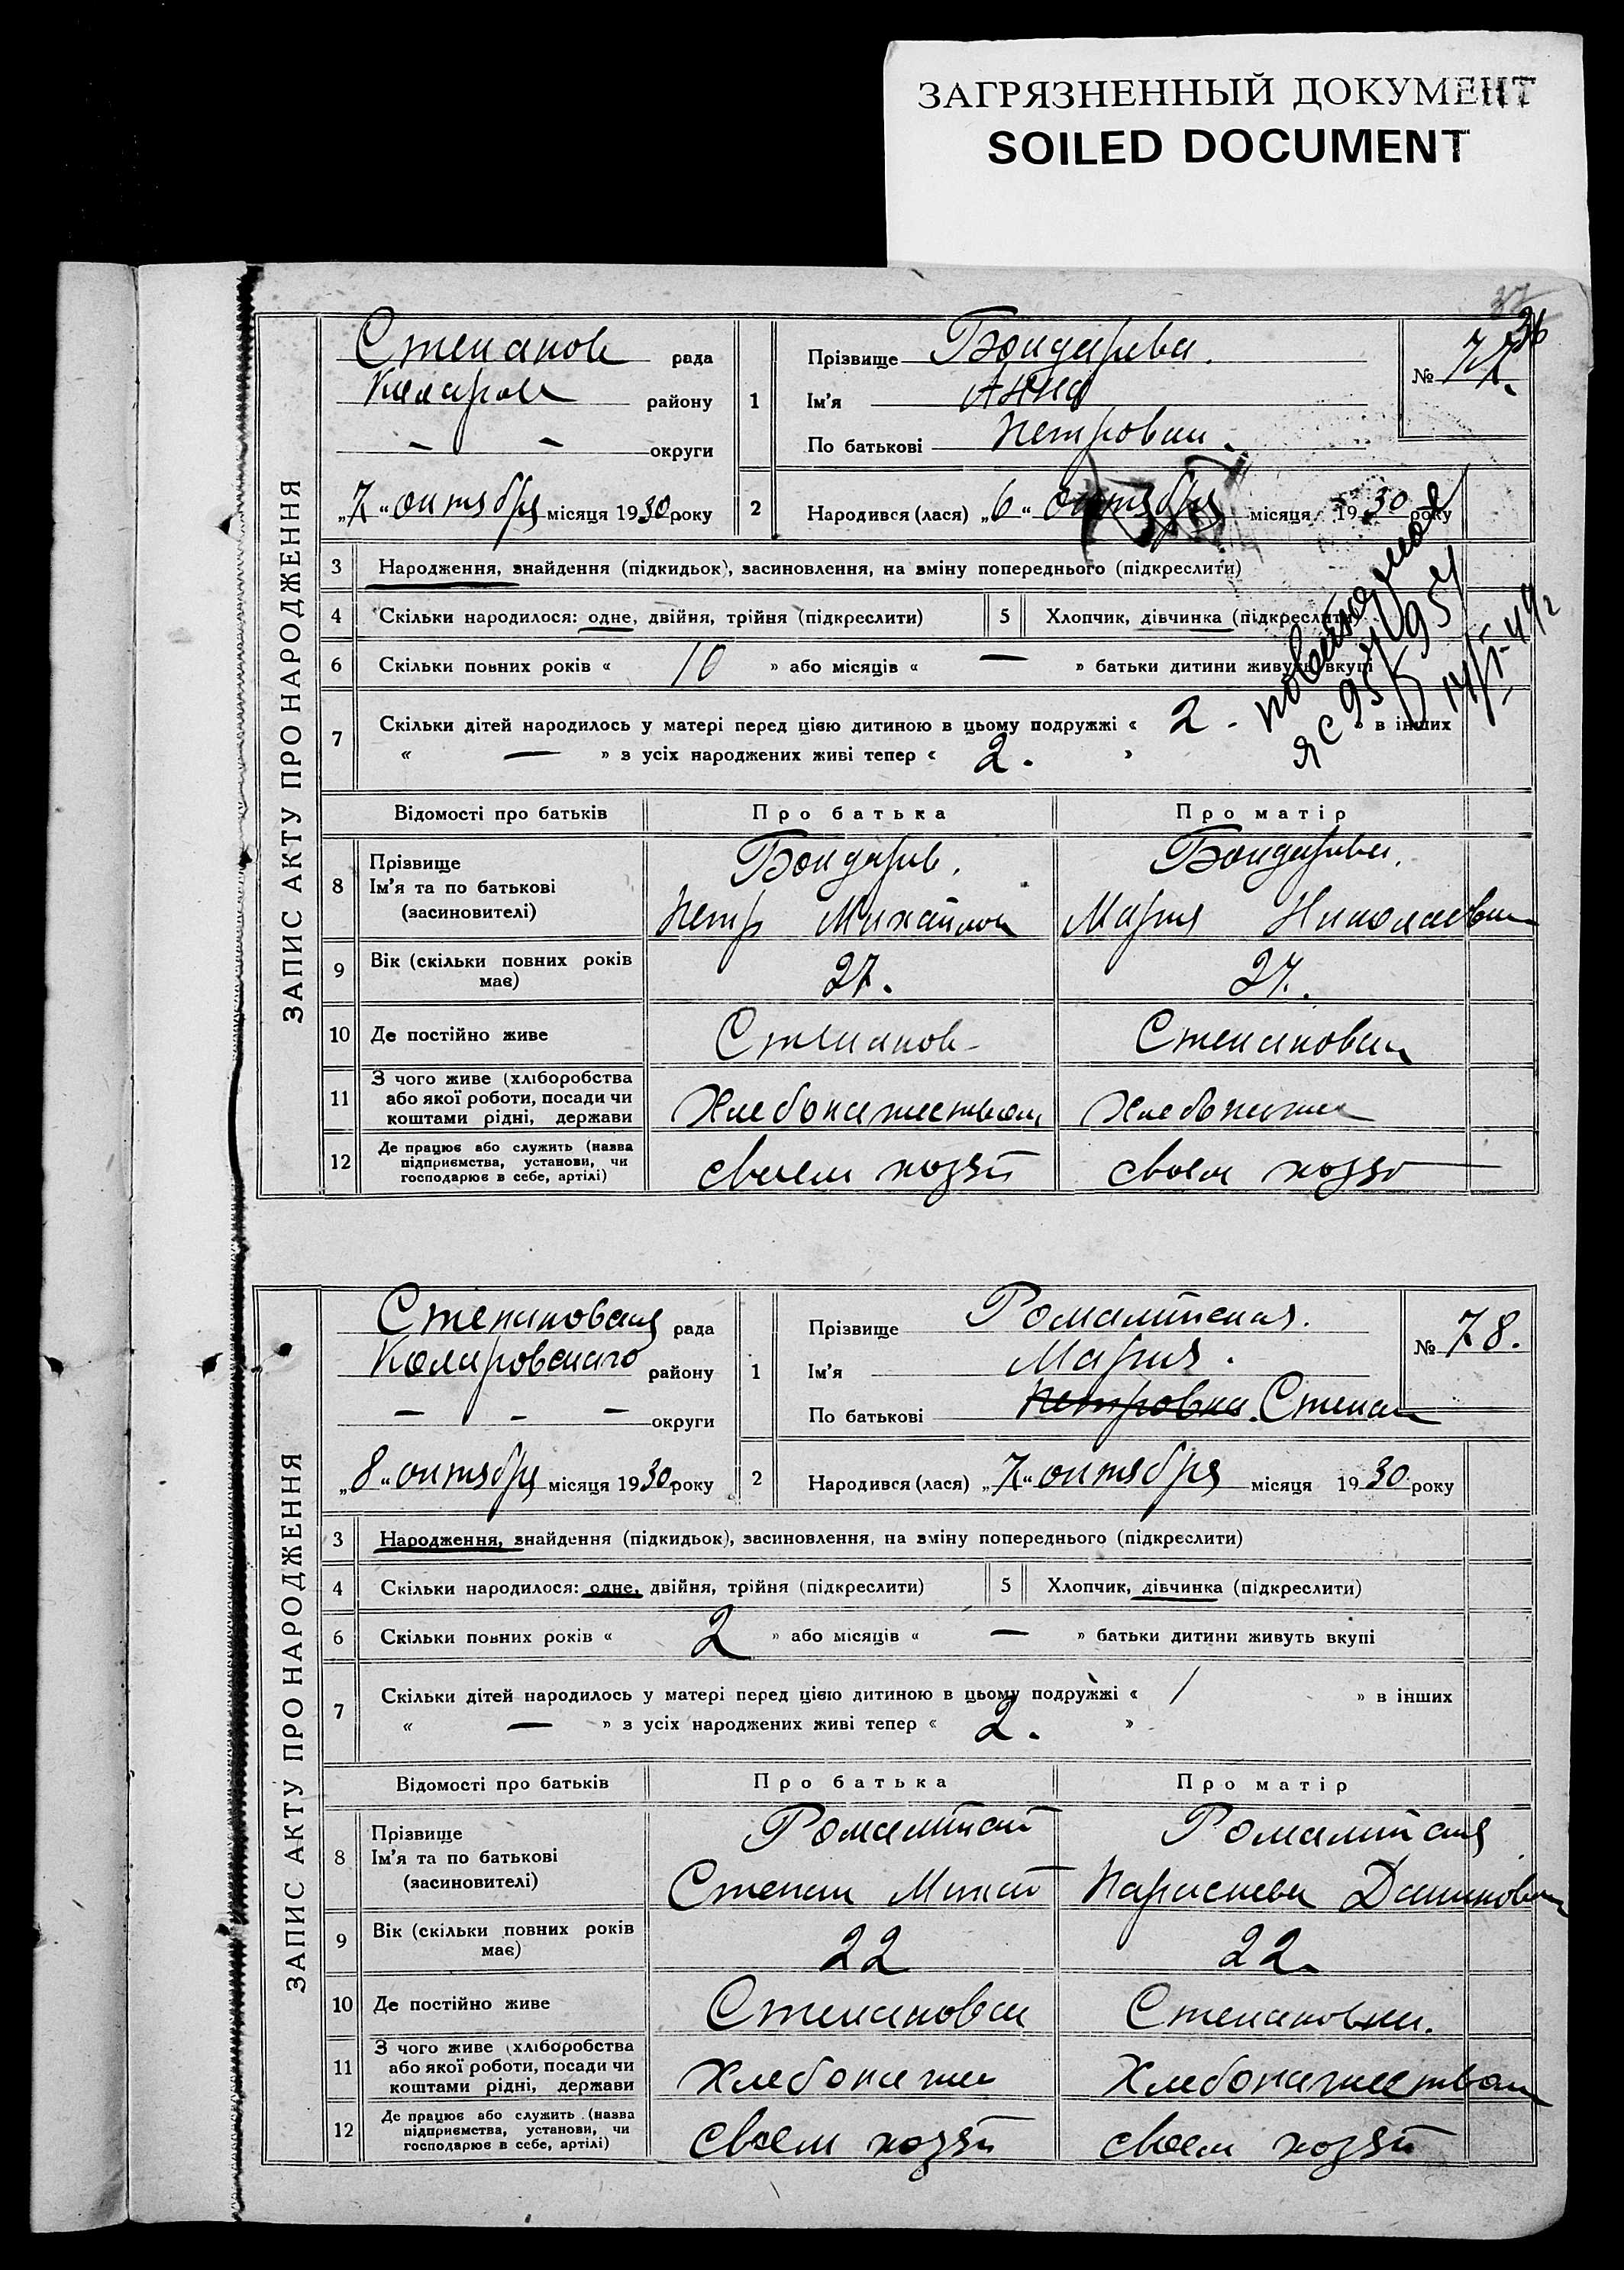 ЗАГРЯЗНЕННЫЙ ДОКУМЕНТ
SOILED DOCUMENT
36
ЗАПИС АКТУ ПРО НАРОДЖЕННЯ
Степанов рада
Коларов району
— — округи
„7“ октября місяця 1930 року
1
Прізвище Бондарева.
Ім'я Анна
По батькові Петровн.
№ 77.
2
Народився (лася) „6“ октября місяця 1930 року
3 Народження, знайдення (підкидьок), засиновлення, на зміну попереднього (підкреслити)
4 Скільки народилося: одне, двійня, трійня (підкреслити)
5 Хлопчик, дівчинка (підкреслити)
6 Скільки повних років « 10 » або місяців « — » батьки дитини живуть вкупі
7 Скільки дітей народилось у матері перед цією дитиною в цьому подружжі « 2 - » в інших
« — » з усіх народжених живі тепер « 2. »
Відомості про батьків Про батька Про матір
8 Прізвище
Ім'я та по батькові
(засиновителі)
Бондарев.
Петр Михайлов
Бондарева.
Мария Николаевн
9 Вік (скільки повних років
має)
27. 27.
10 Де постійно живе Степанов- Степановк
11 З чого живе (хліборобства
або якої роботи, посади чи
коштами рідні, держави
Хлебопашеством Хлебопаше
12 Де працює або служить (назва
підприємства, установи, чи
господарює в себе, артілі)
своем хозяй своем хозя
ЗАПИС АКТУ ПРО НАРОДЖЕННЯ
Степановская рада
Коларовского району
— — — округи
„8“ октября місяця 1930 року
1
Прізвище
Ім'я Мария.
По батькові Петровна. Степан
№ 78.
2
Народився (лася) „7“ октября місяця 1930 року
3 Народження, знайдення (підкидьок), засиновлення, на зміну попереднього (підкреслити)
4 Скільки народилося: одне, двійня, трійня (підкреслити)
5 Хлопчик, дівчинка (підкреслити)
6 Скільки повних років « 2 » або місяців « — » батьки дитини живуть вкупі
7 Скільки дітей народилось у матері перед цією дитиною в цьому подружжі « 1 » в інших
« — » з усіх народжених живі тепер « 2. »
Відомості про батьків Про батька Про матір
8 Прізвище
Ім'я та по батькові
(засиновителі)
Степан Михай
9 Вік (скільки повних років
має)
22 22.
10 Де постійно живе Степановк Степановки.
11 З чого живе (хліборобства
або якої роботи, посади чи
коштами рідні, держави
Хлебопаше Хлебопашеством
12 Де працює або служить (назва
підприємства, установи, чи
господарює в себе, артілі)
своем хозяй своем хозяй